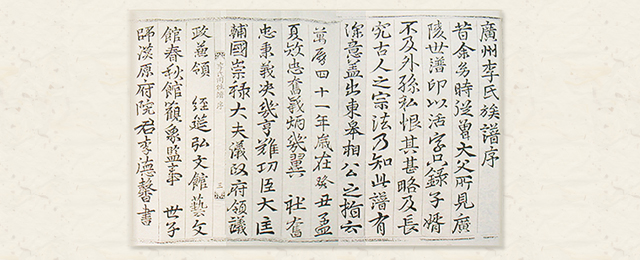 廣州李氏族譜序
昔余少時從曾大父所見廣
陵世譜印以活字只錄子婿
不及外孫私恨其甚略及長
究古人之宗法乃知此譜有
深意盖出東皐相公之指云
萬曆四十一年歲在癸丑孟
夏效忠奮義炳幾翼 社奮
忠秉義決幾亨難功臣大匡
輔國崇祿大夫議政府領議
政兼領 經筵弘文館藝文
館春秋館觀象監事 世子
師漢原府院君李德馨書